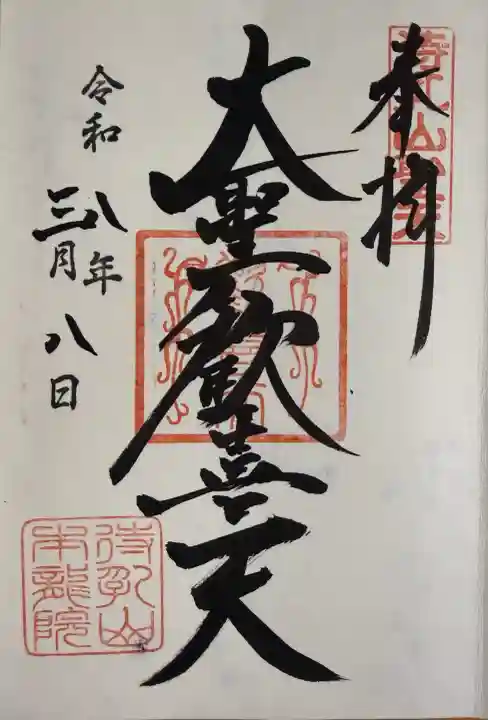 奉拝
待乳山聖天
大聖歓喜天
令和八年
三月八日
待乳山
本龍院